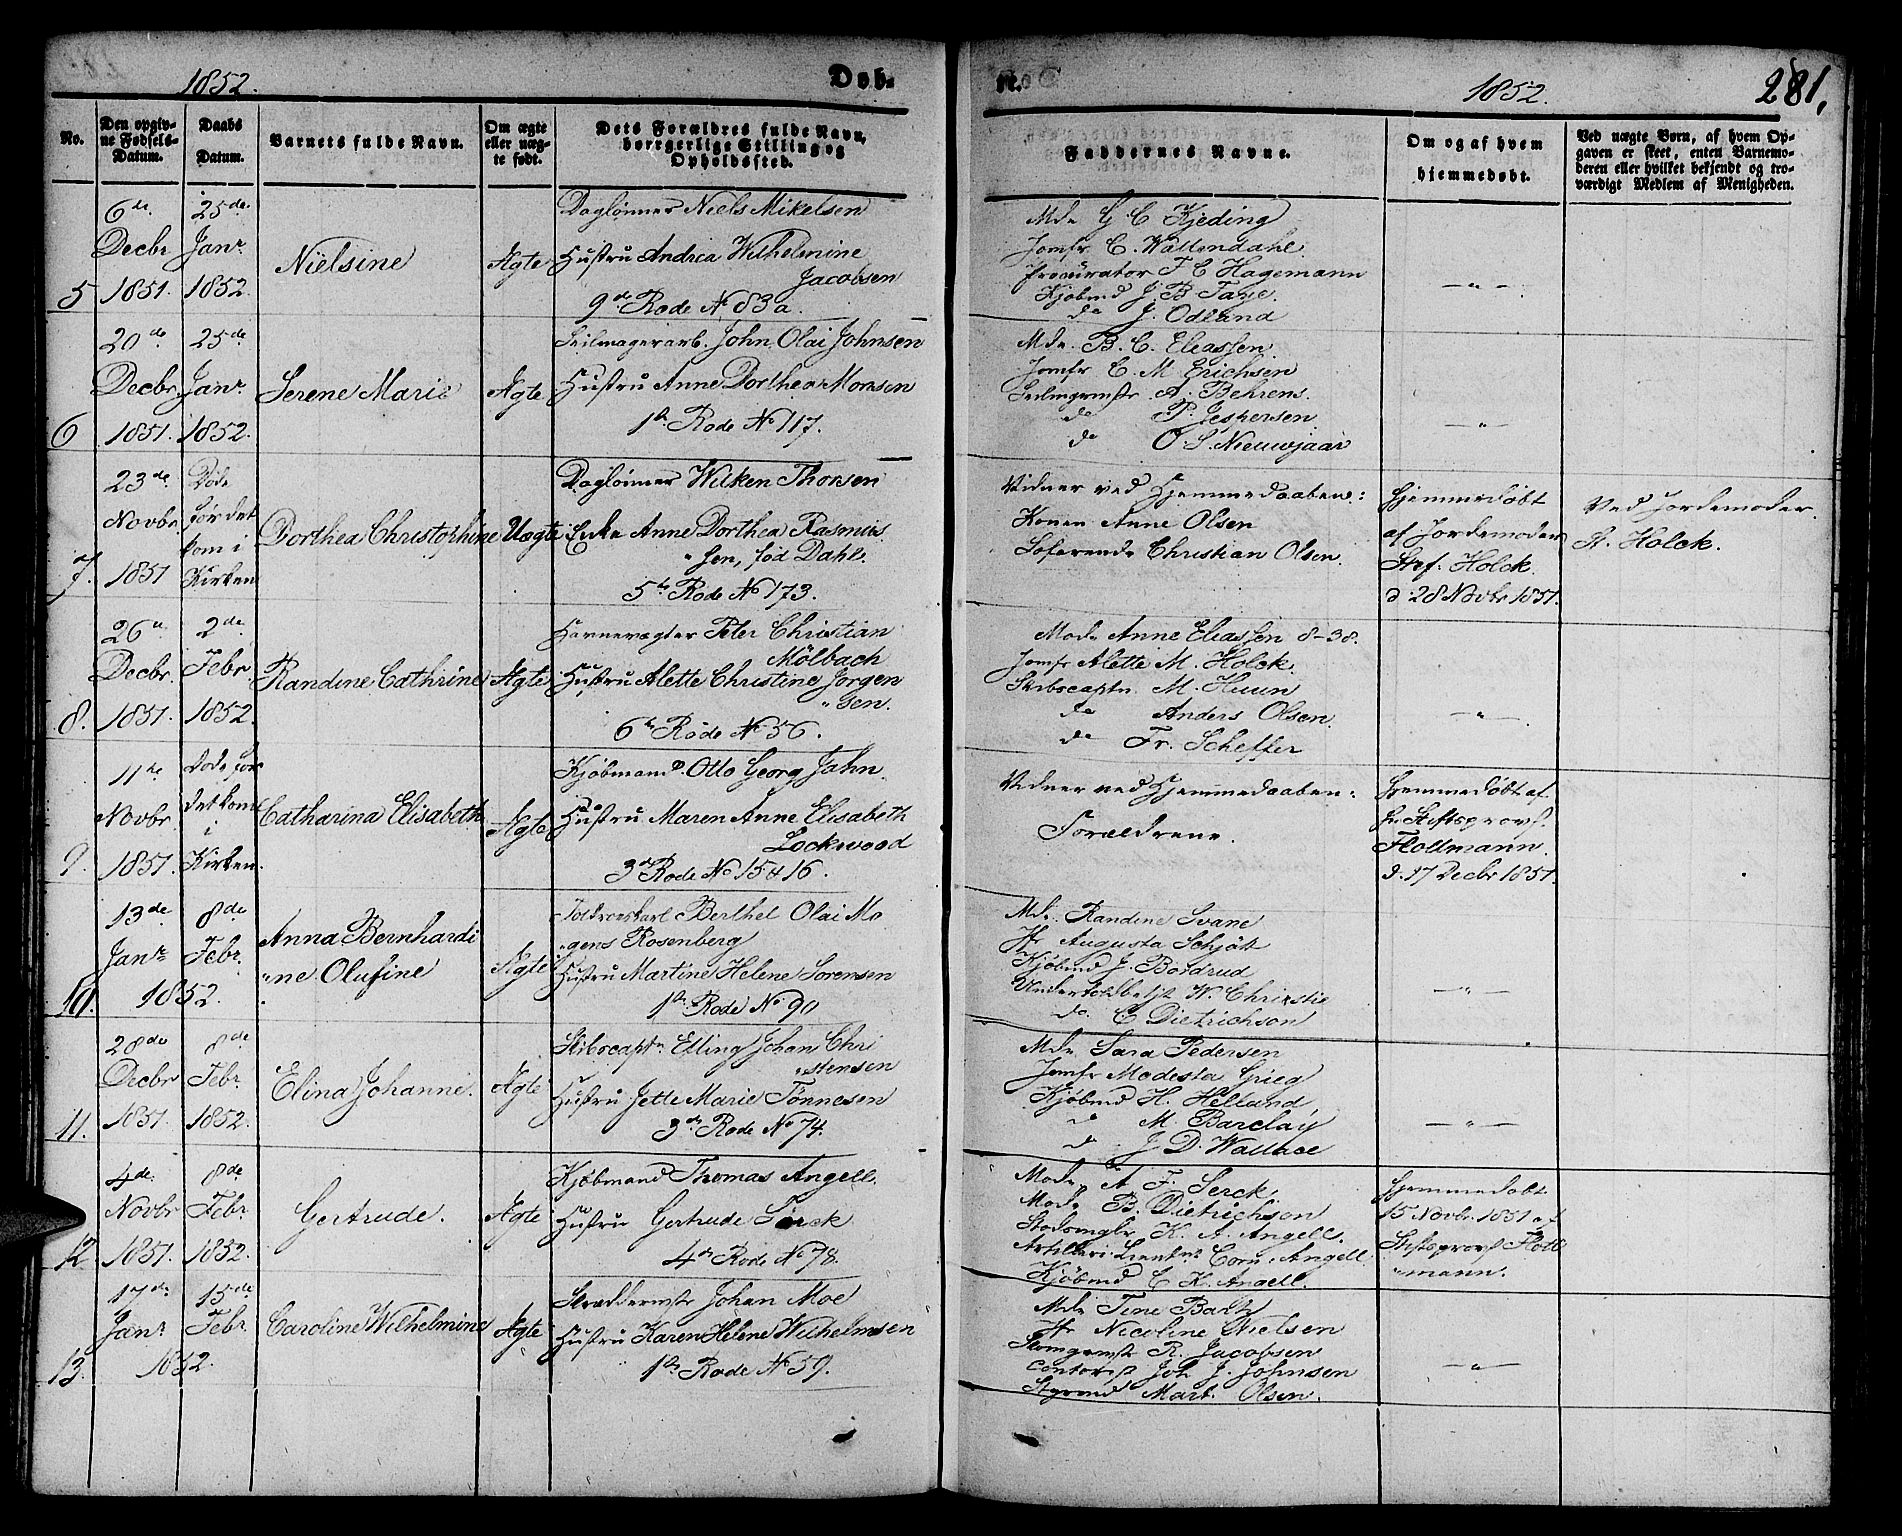 1852.
Døb-
No.
Den opgiv-
ne Fødsels-
Datum.
Daabs
Datum.
Barnets fulde Navn.
Om ægte
eller uæg-
te født.
Dets Forældres fulde Navn,
borgerlige Stilling og
Opholdssted.
5
6te
Decbr
1851.
25de
Janr
1852
Nielsine
Ægte
Daglønner Niels Mikelsen
Hustru Andrea Wilhelmine
Jacobsen
9de Rode No 83a.
6
20de
Decbr
1851.
25de
Janr
1852.
Serene Marie
Ægte
Seilmagerarb. John Olai Johnsen
Hustru Anne Dorthea Monsen
1ste Rode No 117.
7.
23de
Novbr
1851
Døde
før det
kom i
Kirken
Dorthea Christophine
Uægte
Daglønner Wilken Thorsen
Enke Anne Dorthea Rasmus
"sen, fød Dahl.
5te Rode No 173.
8.
26de
Decbr.
1851.
2de
Febr
1852.
Randine Cathrine
Ægte
Havnevægter Peter Christian
Mölbach
Hustru Alette Christine Jorgen
"sen.
6te Rode No 56.
9.
11te
Novbr
1851.
Døde før
det kom
i
Kirken.
Catharina Elisabeth
Ægte
Kjøbmand Otto Georg Jahn
Hustru Maren Anne Elisabeth
Lockwood
3de Rode No 15 & 16.
10.
13de
Janr
1852.
8de
Febr.
Anna Bernhardi
"ne Olufine
Ægte
Berthel Olai Mo
"gens Rosenberg
Hustru Martine Helene Sorensen
1ste Rode No 90
11.
28de
Decbr
1851.
8de
Febr.
1852.
Elina Johanne.
Ægte
Skibscaptn Elling Johan Chri
"stensen
Hustru Jette Marie Tønnesen
3de Rode No 74.
12
4de
Novbr
1851.
8de
Febr.
1852.
Gertrude.
Ægte
Kjøbmand Thomas Angell.
Hustru Gertrude Serck
4de Rode No 78.
13.
17de
Janr
1852.
15de
Febr
Caroline Wilhelmine
Ægte
Skræddermstr Johan Moe
Hustru Karen Helene Wilhelmsen
1ste Rode No 59.
te.
1852.
281.
Faddernes Navne.
Om og af hvem
hjemmedøbt.
Ved uægte Børn, af hvem Op-
gaven er skeet, enten Barnemo-
deren eller hvilket bekjendt og tro-
værdigt Medlem af Menigheden.
Mde G C Kjeding
Jomfr C. Wallendahl
Procurator F C Hagemann
Kjøbmd J. B Faye.
do J. Odland
— " —
Mde. B. C. Eleassen.
Jomfr C. M Erichsen
Seilmgrmstr A. Behrens.
do P. Jespersen
do O. S. Nieuwjaar
— " —
Vidner ved Hjemmedaaben:
Konen Anne Olsen
Søfarende Christian Olsen.
Hjemmedøbt
af Jordemoder
Stef. Holck
d: 28 Novbr 1851.
Ved Jordemoder
S. Holck.
Made Anne Eleassen 8-38.
Jomfr Alette M. Holck.
Skibscaptn. M. Huun
do Anders Olsen.
do Fr. Scheffer
— " —
Vidner ved Hjemmedaaben:
Forældrene.
Hjemmedøbt af
Hr Stiftsprovst
Flottmann.
d. 17 Decbr 1851.
Mde. Randine Svane
Jfr Augusta Schjött
Kjøbmd J. Bordrud
Undertoldbetjt W. Christie
do C Dietrichson
— " —
Mde Sara Pedersen
Jomfr Modesta Grieg
Kjøbmd H. Helland,
do M. Barclay
do J. D. Wallace
— " —
Made A F. Serck.
Made B. Dietrichson
Stadsmglr K. A. Angell.
Artilleri Lieutnt. Corn. Angell.
Kjøbmd C K. Angell.
Hjemmedøbt
15 Novbr. 1851 af
Stiftsprovst Flott
"mann.
Mde Tine Bach
Jfr Nicoline Nielsen
Skomgrmstr R. Jacobsen
Contorist Joh J. Johnsen
Styrmd Mart. Olsen.
— " —